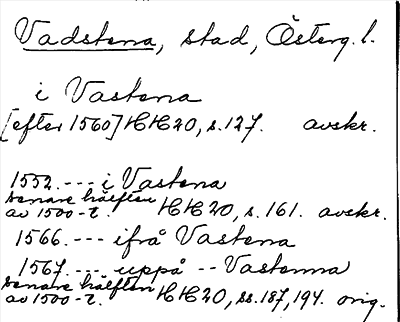 Vadstena, stad, Österg. l.
i Vastena
[efter 1560] HH 20, s. 127. avskr.
1552. --- i Vastena
senare hälften av 1500-t. HH 20, s. 161. avskr.
1566. --- ifrå Vastena
1567. --- uppå -- Vastenna
senare hälften av 1500-t. HH 20, ss. 187, 194. orig.